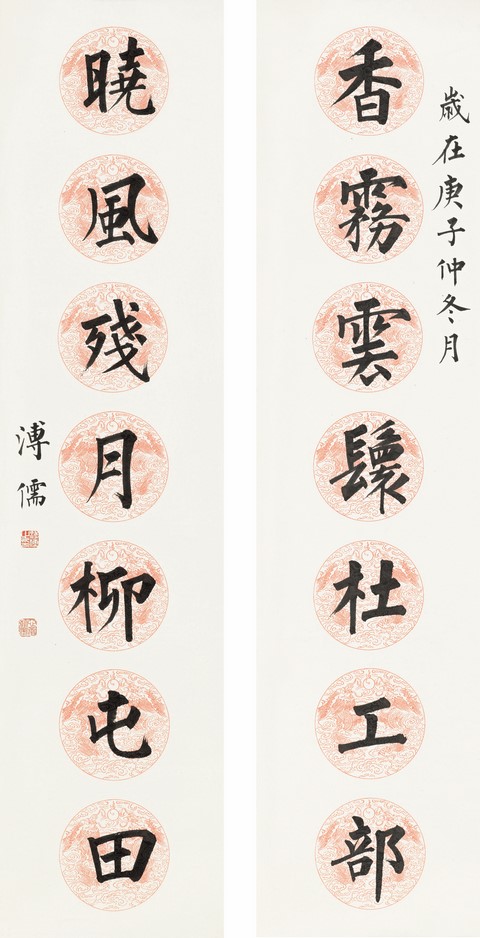 歲在庚子仲冬月
香霧雲鬟杜工部
曉風殘月柳屯田
溥儒